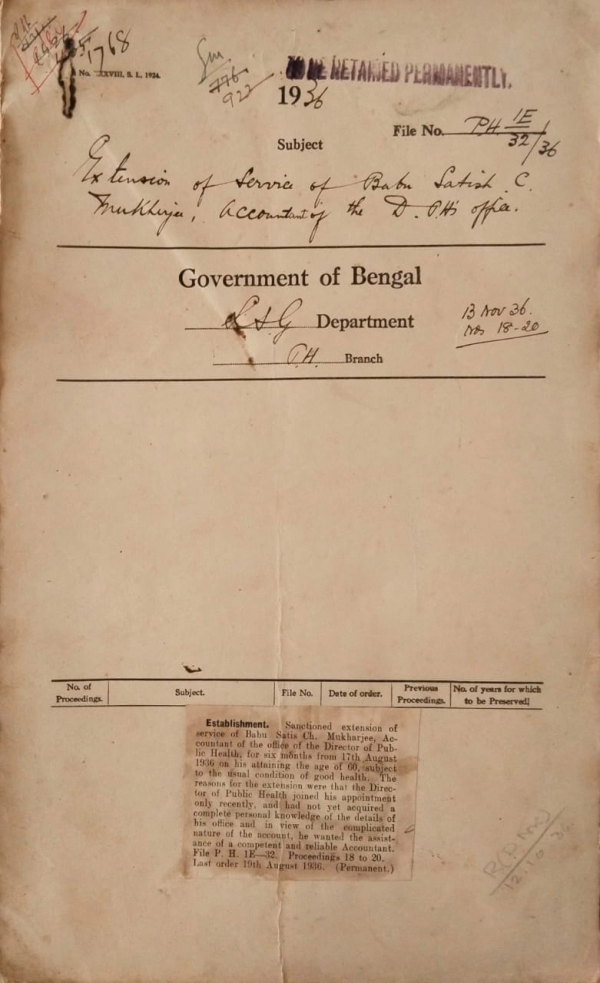 1768
No. XXVIII, S. I., 1934.
TO BE RETAINED PERMANENTLY.
922
1936
File No. P.H. 1E/32 1/36
Subject
Extension of Service of Babu Satish C.
Mukherjee, Accountant of the D.P.H's office.
Government of Bengal
L S G Department
13 Nov 36.
Nos 18-20
P.H. Branch
No. of Proceedings. Subject. File No. Date of order. Previous Proceedings. No. of years for which to be Preserved
Establishment. Sanctioned extension of
service of Babu Satis Ch. Mukharjee, Ac-
countant of the office of the Director of Pub-
lic Health, for six months from 17th August
1936 on his attaining the age of 60, subject
to the usual condition of good health. The
reasons for the extension were that the Direc-
tor of Public Health joined his appointment
only recently, and had not yet acquired a
complete personal knowledge of the details of
his office and in view of the complicated
nature of the account, he wanted the assist-
ance of a competent and reliable Accountant.
File P. H. 1E—32. Proceedings 18 to 20.
Last order 19th August 1936. (Permanent.)